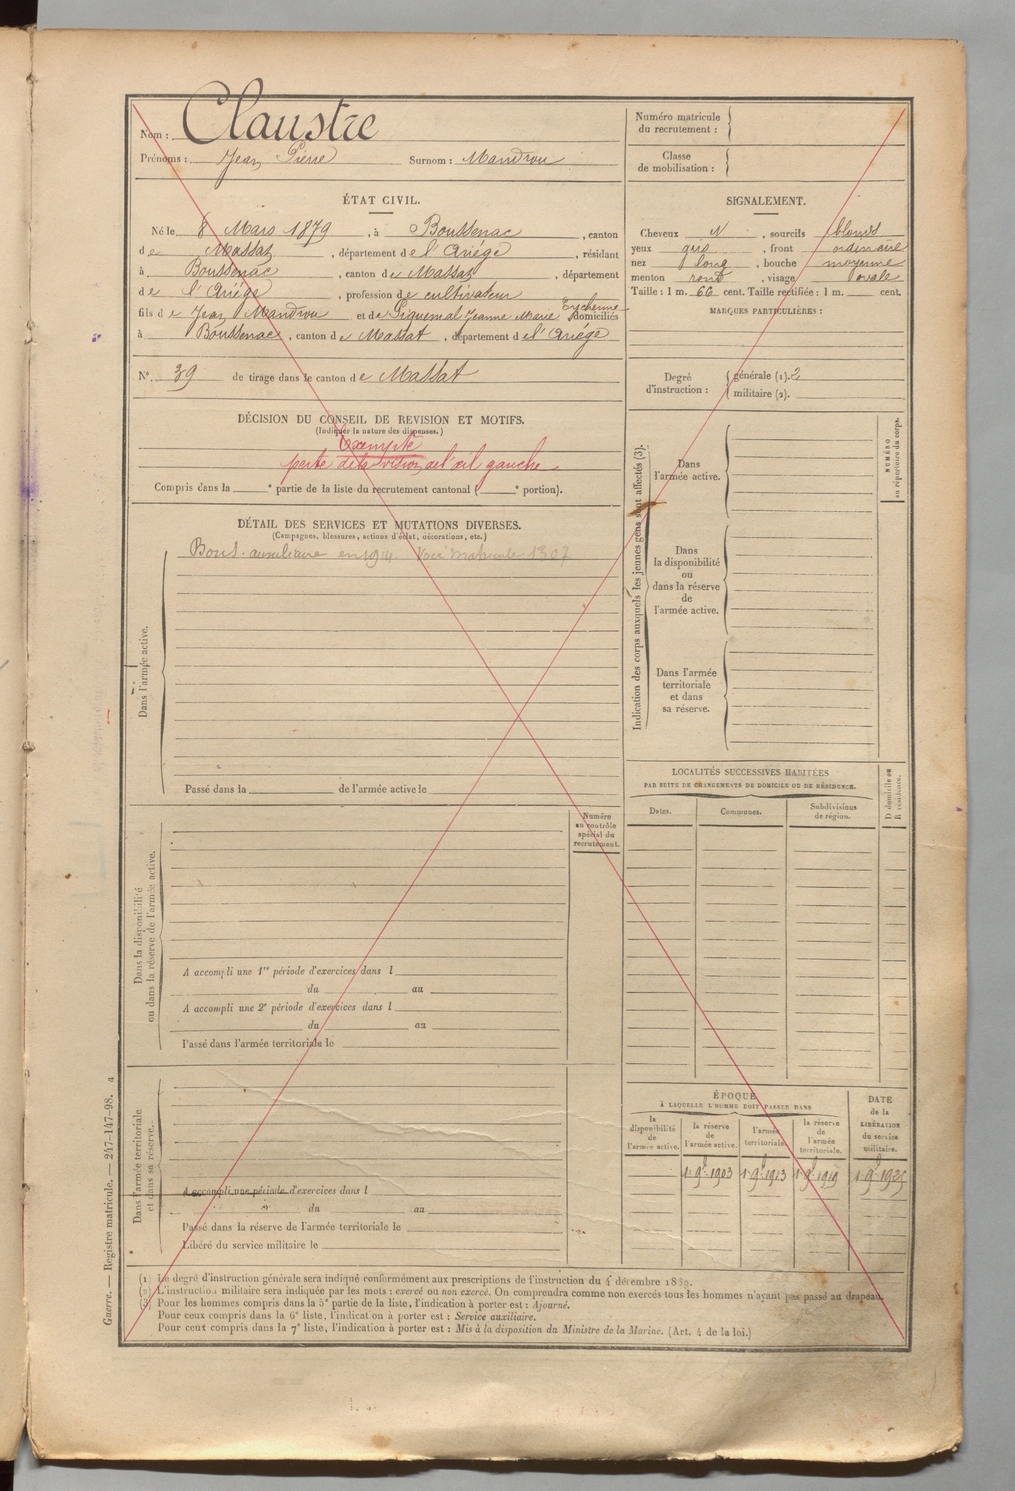 Nom : Claustre
Prénoms : Jean Pierre Surnom : Mandrou
ÉTAT CIVIL.
Né le 8 Mars 1879, à Boussenac, canton
de Massat, département de l'Ariége, résidant
à Boussenac, canton de Massat, département
de l'Ariége, profession de cultivateur
fils de Jean Mandrou et de Piquemal Jeanne Marie domiciliés
à Boussenac, canton de Massat, département de l'Ariége
N°. 39 de tirage dans le canton de Massat
DÉCISION DU CONSEIL DE REVISION ET MOTIFS.
(Indiquer la nature des dispenses.)
Exempté
perte de la vision de l'œil gauche
Compris dans la ______e partie de la liste du recrutement cantonal (______e portion).
DÉTAIL DES SERVICES ET MUTATIONS DIVERSES.
(Campagnes, blessures, actions d'éclat, décorations, etc.)
Bons. auxiliaire en 1914. Voir matricule 1307
Dans l'armée active.
Passé dans la ______ de l'armée active le
Dans la disponibilité
ou dans la réserve de l'armée active.
Numéro
au contrôle
spécial du
recrutement.
A accompli une 1re période d'exercices dans l
du ______ au
A accompli une 2e période d'exercices dans l
du ______ au
Passé dans l'armée territoriale le
Dans l'armée territoriale
et dans sa réserve.
A accompli une période d'exercices dans l
du ______ au
Passé dans la réserve de l'armée territoriale le
Libéré du service militaire le
Numéro matricule
du recrutement :
Classe
de mobilisation :
SIGNALEMENT.
Cheveux N, sourcils blonds
yeux gris, front ordinaire
nez long, bouche moyenne
menton rond, visage ovale
Taille : 1 m. 66 cent. Taille rectifiée : 1 m. ____ cent.
MARQUES PARTICULIÈRES :
Degré
d'instruction :
générale (1). 2
militaire (2).
Indication des corps auxquels les jeunes gens sont affectés (3).
NUMÉRO
au répertoire du corps.
Dans
l'armée active.
Dans
la disponibilité
ou
dans la réserve
de
l'armée active.
Dans l'armée
territoriale
et dans
sa réserve.
LOCALITÉS SUCCESSIVES HABITÉES
PAR SUITE DE CHANGEMENTS DE DOMICILE OU DE RÉSIDENCE.
D domicile ou
R résidence.
Dates. Communes. Subdivisions
de région.
ÉPOQUE
À LAQUELLE L'HOMME DOIT PASSER DANS
la
disponibilité
de
l'armée active.
la réserve
de
l'armée active.
l'armée
territoriale.
la réserve
de
l'armée
territoriale.
DATE
de la
LIBÉRATION
du service
militaire.
1. 9b 1903 1. 9b 1913 1. 9b 1919 1. 9b 1925
(1) Le degré d'instruction générale sera indiqué conformément aux prescriptions de l'instruction du 4 décembre 1889.
(2) L'instruction militaire sera indiquée par les mots : exercé ou non exercé. On comprendra comme non exercés tous les hommes n'ayant pas passé au drapeau.
(3) Pour les hommes compris dans la 5e partie de la liste, l'indication à porter est : Ajourné.
Pour ceux compris dans la 6e liste, l'indication à porter est : Service auxiliaire.
Pour ceux compris dans la 7e liste, l'indication à porter est : Mis à la disposition du Ministre de la Marine. (Art. 4 de la loi.)
Guerre. — Registre matricule. — 247-147-98. a